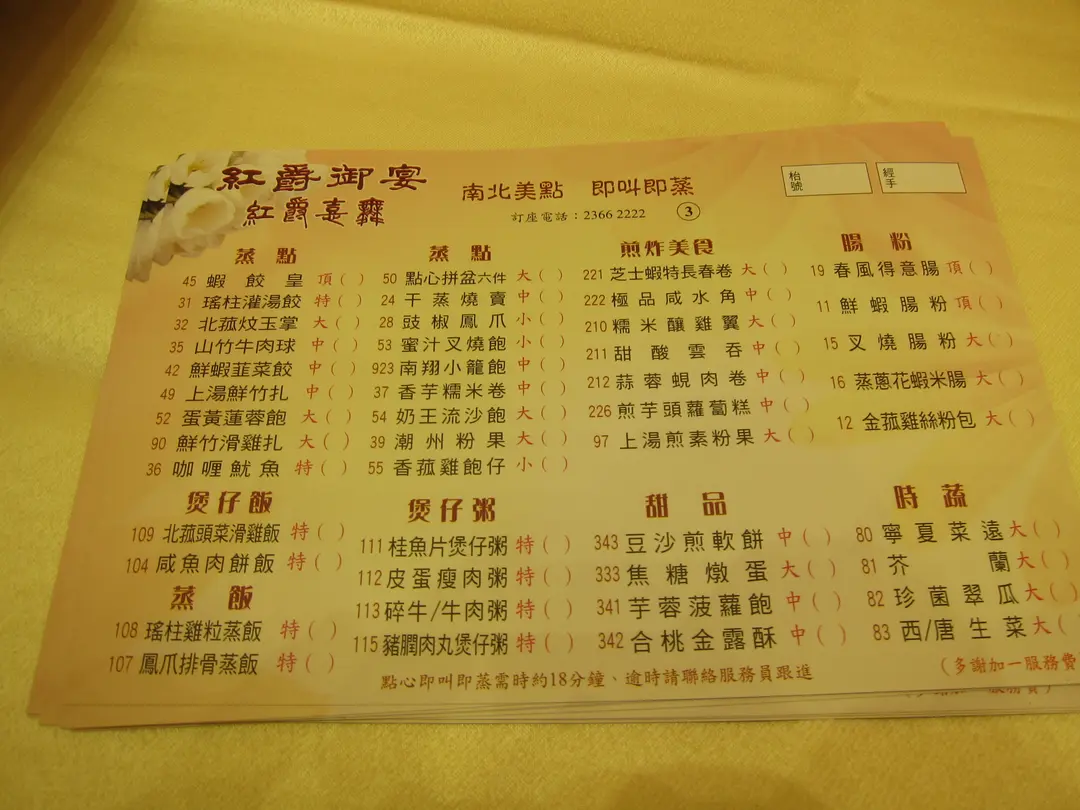 紅爵御宴
紅爵喜寶
南北美點 即叫即蒸
訂座電話：2366 2222 ③
枱號
經手
蒸點
45 蝦餃皇 頂( )
31 瑤柱灌湯餃 特( )
32 北菰炆玉掌 大( )
35 山竹牛肉球 中( )
42 鮮蝦韮菜餃 中( )
49 上湯鮮竹扎 中( )
52 蛋黃蓮蓉飽 大( )
90 鮮竹滑雞扎 大( )
36 咖喱魷魚 特( )
蒸點
50 點心拼盆六件 大( )
24 干蒸燒賣 中( )
28 豉椒鳳爪 小( )
53 蜜汁叉燒飽 小( )
923 南翔小籠飽 中( )
37 香芋糯米卷 中( )
54 奶王流沙飽 大( )
39 潮州粉果 大( )
55 香菰雞飽仔 小( )
煎炸美食
221 芝士蝦特長春卷 大( )
222 極品咸水角 中( )
210 糯米釀雞翼 大( )
211 甜酸雲吞 中( )
212 蒜蓉蜆肉卷 中( )
226 煎芋頭蘿蔔糕 中( )
97 上湯煎素粉果 大( )
腸粉
19 春風得意腸 頂( )
11 鮮蝦腸粉 頂( )
15 叉燒腸粉 大( )
16 蒸蔥花蝦米腸 大( )
12 金菰雞絲粉包 大( )
煲仔飯
109 北菰頭菜滑雞飯 特( )
104 咸魚肉餅飯 特( )
蒸飯
108 瑤柱雞粒蒸飯 特( )
107 鳳爪排骨蒸飯 特( )
煲仔粥
111 桂魚片煲仔粥 特( )
112 皮蛋瘦肉粥 特( )
113 碎牛/牛肉粥 特( )
115 豬膶肉丸煲仔粥 特( )
甜品
343 豆沙煎軟餅 中( )
333 焦糖燉蛋 大( )
341 芋蓉菠蘿飽 中( )
342 合桃金露酥 中( )
時蔬
80 寧夏菜遠 大( )
81 芥蘭 大( )
82 珍菌翠瓜 大( )
83 西/唐生菜 大(
點心即叫即蒸需時約18分鐘、逾時請聯絡服務員跟進
(多謝加一服務費
服務費)